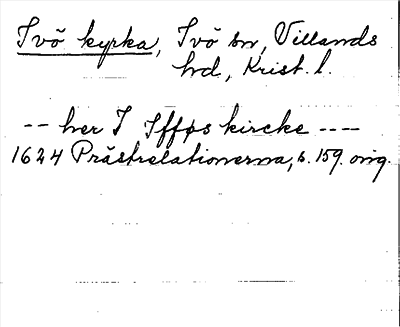 Ivö kyrka, Ivö sn, Villands
hd, Krist. l.
-- her I Ifføs kircke ----
1624 Prästrelationerna, s. 159. orig.